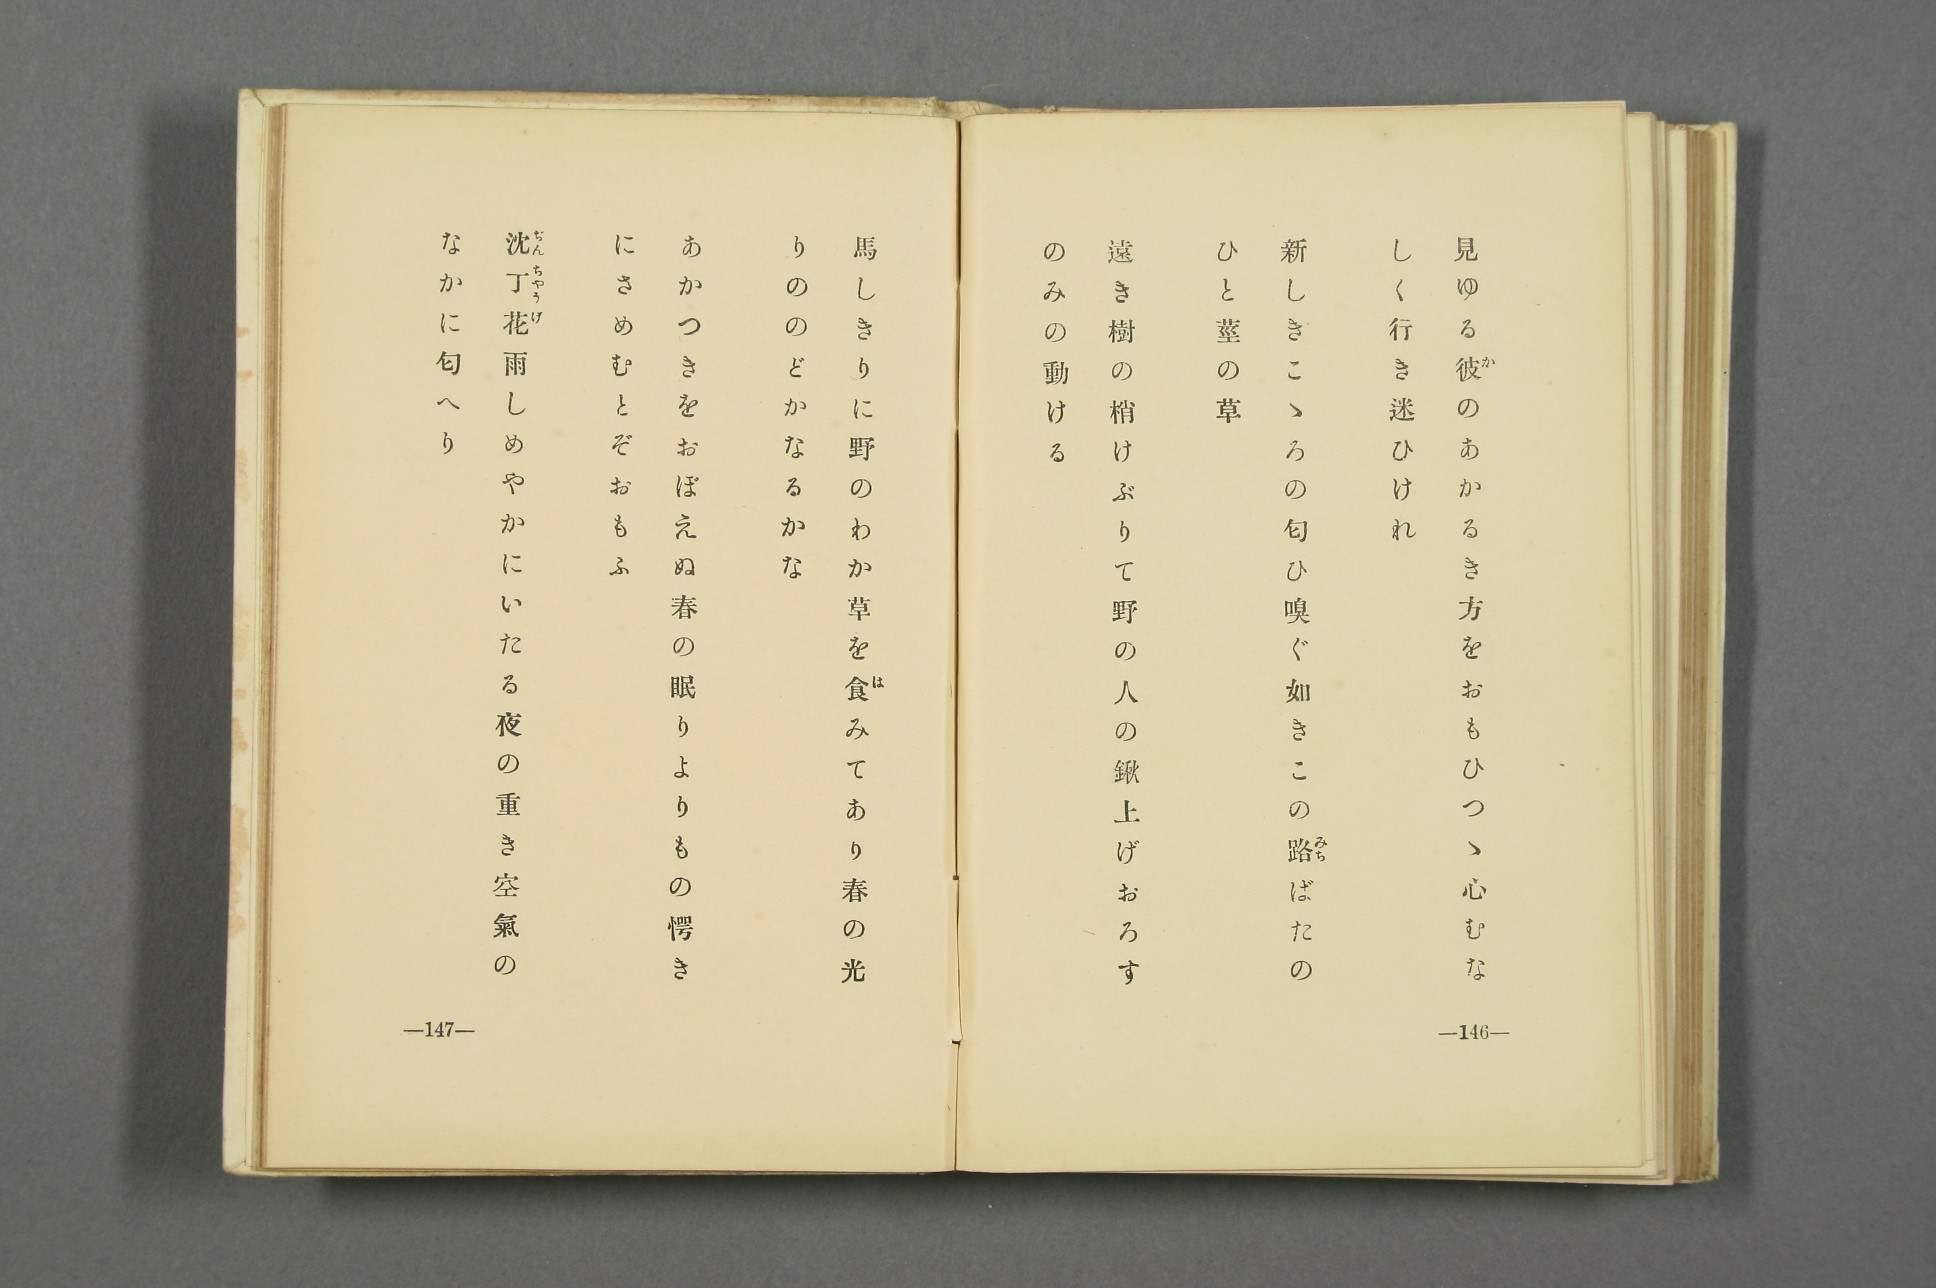 見ゆる彼のあかるき方をおもひつゝ心むな
しく行き迷ひけれ
新しきこゝろの匂ひ嗅ぐ如きこの路ばたの
ひと莖の草
遠き樹の梢けぶりて野の人の鍬上げおろす
のみの動ける
—146—
馬しきりに野のわか草を食みてあり春の光
りののどかなるかな
あかつきをおぼえぬ春の眠りよりもの愕き
にさめむとぞおもふ
沈丁花雨しめやかにいたる夜の重き空氣の
なかに匂へり
—147—